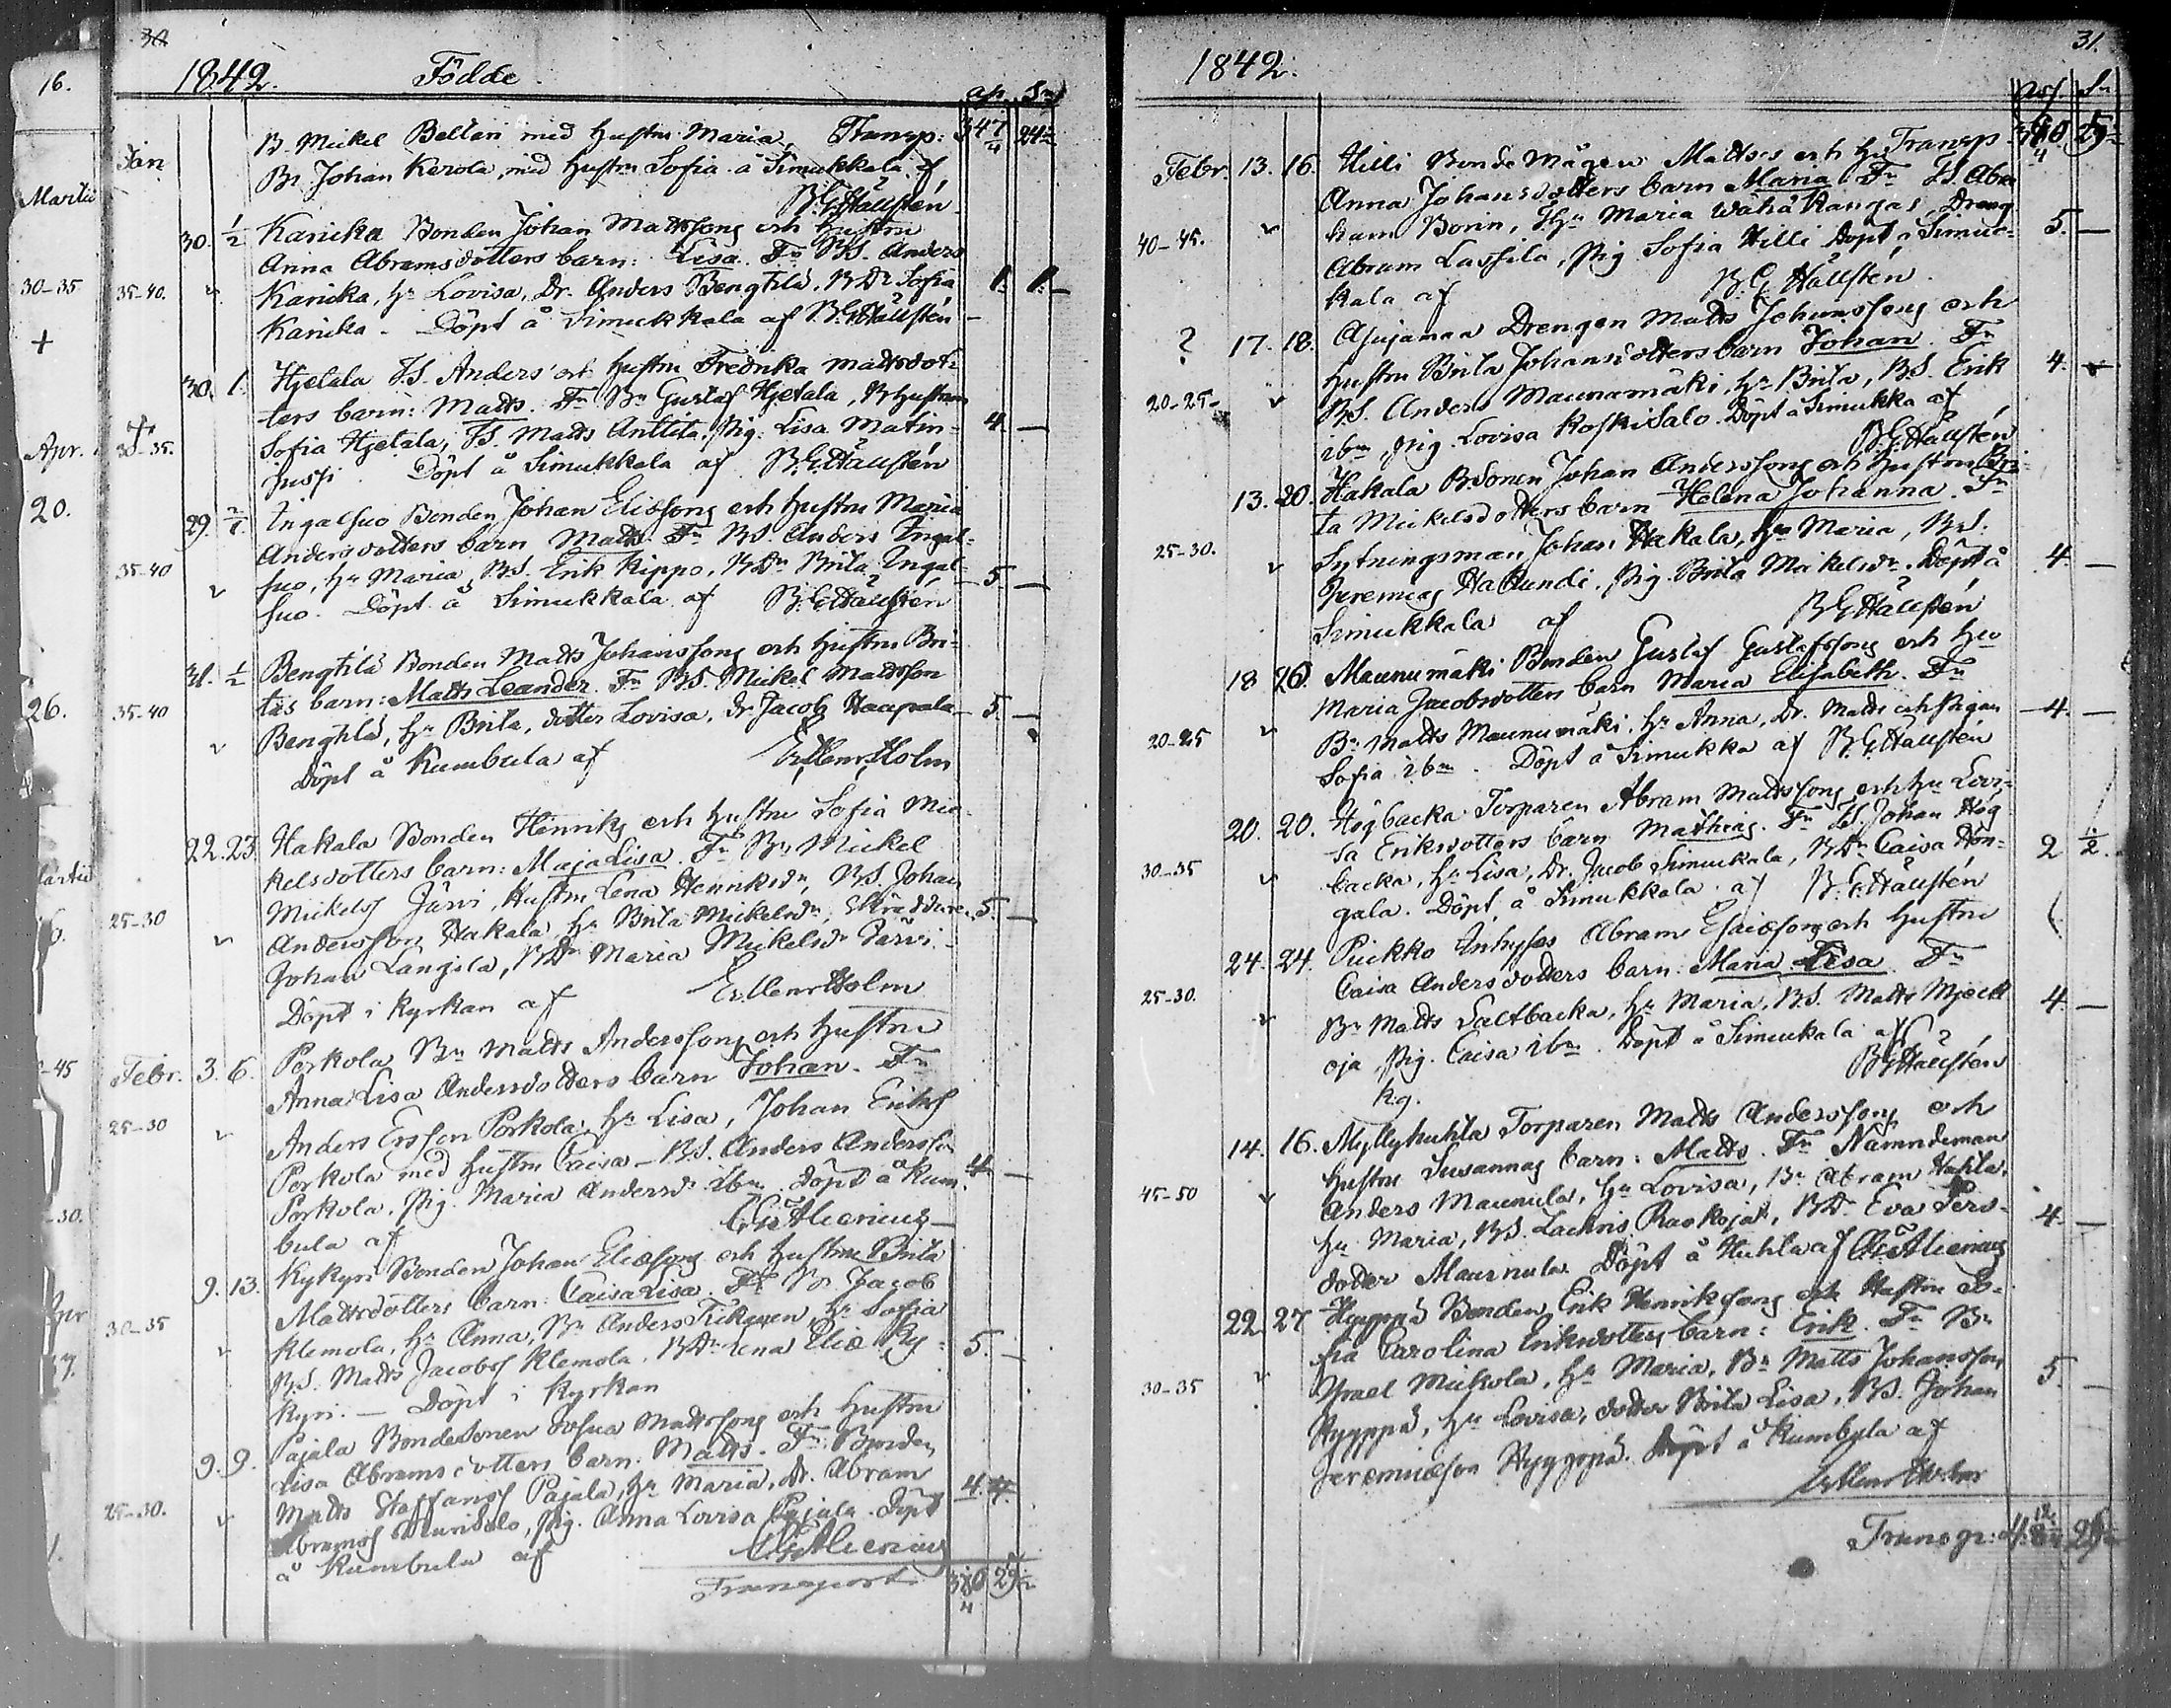 30
1842. Födde.
ap. Sn
Jan
B. Mickel Bellari med hustru Maria, Transp: 347 24
Br Johan Kerola, med hustru Sofia å Simukkala, af
B.G. Hällsten
30. 1/2 Karicka Bonden Johan Mattssons och hustru
Anna Abramsdotters barn: Lisa. Fr BS. Anders
35-40. Karicka, hr Lovisa, Dr. Anders Bengtilä, BDr Sofia 1. 1. –
Karicka – Döpt å Simukkala af B.G. Hällsten
30. 1. Hjelala J.S. Anders och hustru Fredrika Mattsdot-
ters barn: Matts. Fr Br Gustaf Hjetala, B hustrun
30-35. Sofia Hjetala, JS. Matts Anttila, Pig. Lisa Matin- 4. –
jussi. Döpt å Simukkala af B.G. Hällsten
29. Ingalsuo Bonden Johan Eliassons och hustru Maria
Andersdotters barn Matts. Fr BS. Anders Ingal-
35-40 suo, hr Maria, BS. Erik Kippo, BDr Brita Ingal- 5. –
suo. Döpt å Simukkala af B.G. Hällsten
31. 1/2 Bengtilä Bonden Matts Johanssons och hustru Bri-
tas barn: Matts Leander. Fr BS. Mickel Mattsson
35-40 Bengtilä, hr Brita, dotter Lovisa, dr Jacob Haapala 5. –
Döpt å Kumbula af Er. Henr. Holm
22. 23. Hakala Bonden Henriks och hustru Sofia Mic-
kelsdotters barn: Maja Lisa. Fr Br Mickel
Mickelss Järvi, Hustru Lena Henriksdr, BS. Johan
25-30 Andersson Hakala, hr Brita Mickelsdr, Skräddaren 5. –
Johan Langila, BDr Maria Mickelsdr Järvi –
Döpt i kyrkan af Er. Henr. Holm
Febr. 3. 6. Porkola Br Matts Anderssons och hustru
Anna Lisa Andersdotters barn Johan. Fr
25-30 Anders Ersson Porkola, hr Lisa, Johan Erikss
Porkola med hustru Caisa – BS. Anders Andersson
Porkola. Pig. Maria Andersdr ibm. Döpt å Kum- 4. –
bula af
9. 13. Kykyri Bonden Johan Eliassons och hustru Brita
Mattsdotters barn: Caisa Lisa. Fr Br Jacob
30-35 Klemola, hr Anna, Br Anders Tikanen, hr Sofia
BS. Matts Jacobss Klemola. BDr Lena Eliæ Ky- 5. –
kyri. – Döpt i kyrkan
9. 9. Pajala Bondesonen Josua Mattssons och hustru
Lisa Abramsdotters barn. Matts. Fr Bonden
Matts Staffanss Pajala, hr Maria, dr. Abram 4.
25-30. Abramss, Pig. Anna Lovisa Pajala. Döpt
å Kumbula af
Transport 380 29
1842. 31.
Transp 380 29
Febr. 13. 16. Hilli Bonde Mågen Mattss och hr
Anna Johansdotters barn Maria Fr JS. Abra
40-45. ham Borin, Hr Maria Wähäkangas, Dreng 5. –
Abram Lassila, Pig Sofia Hilli Döpt å Simuc-
kala af B.G. Hällsten
? 17. 18. Drengen Matts Johanssons och
hustru Brita Johansdotters barn Johan. Fr
20-25- BS. Anders Maunumäki, hr Brita, BS. Erik 4.
ibm, Pig. Lovisa Koskisalo. Döpt å Simukka af
B.G. Hällsten
13. 20. Hakala B.sonen Johan Anderssons och hustru Bri-
ta Mickelsdotters barn Helena Johanna. Fr
25-30. Sytningsman Johan Hakala, hr Maria, BS.
Jeremias Haklundi. Pig. Brita Mickelsdr. Döpt å 4. –
Simukkala af B.G. Hällsten
18 26. Maunumäki Bonden Gustaf Gustafssons och hru
Maria Jacobsdotters barn Maria Elisabeth. Fr
20-25 Br Matts Maunumäki, hr Anna, dr. Matts och Pigan 4. –
Sofia ibm. Döpt å Simukka af B.G. Hällsten
20. 20. Högbacka Torparen Abram Mattssons och hr Lovi-
sa Eriksdotters barn Mathias. Fr TS. Johan Hög
30-35 backa, hr Lisa, Dr. Jacob Simukala, BDr Caisa Hon- 2 1/2.
gala. Döpt å Simukkala af B.G. Hällsten
24. 24. Puikko Inhyses Abram Esaiæsons och hustru
Caisa Andersdotters barn: Maria Lisa. Fr
25-30. Br Matts Saltbacka, hr Maria, BS. Matts Mjölk 4. –
oja, Pig. Caisa ibm. Döpt å Simukala af
kg. B.G. Hällsten
14. 16. Myllyhuhta Torparen Matts Anderssons och
hustru Susannas barn: Matts. Fr Nämndeman
45-50 Anders Maunula, hr Lovisa, Br Abram Huhta,
hr Maria, BS. Raskoja, BDr Eva Pers- 4. –
dotter Maunula. Döpt å Huhta af
22 27 Hyyppä Bonden Erik Henrikssons och Hustru So-
fia Carolina Eriksdotters barn: Erik. Fr Br
30-35 Israel Mickola, hr Maria, Br Matts Johansson 5. –
Hyyppä, hr Lovisa, dotter Brita Lisa, BS. Johan
Jeremiæson Hyyppä. Döpt å Kumbyla af
Er Henr Holm
Transp:
16.
Martii
30-35
+
Apr.
20.
26.